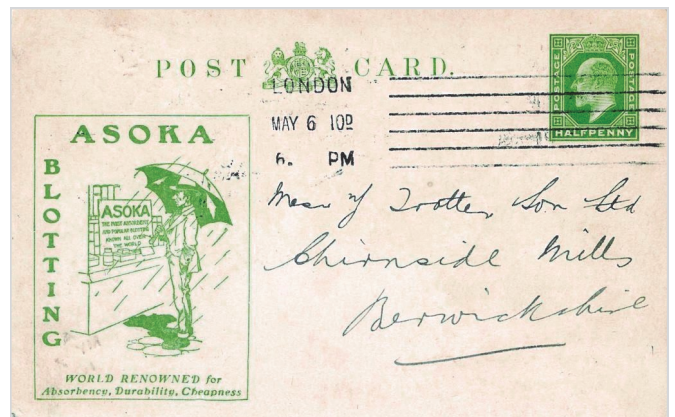 POST CARD.
POSTAGE POSTAGE
HALFPENNY
LONDON
MAY 6 10
6. PM
ASOKA
BLOTTING
ASOKA
THE MOST ABSORBENT
AND POPULAR BLOTTING
KNOWN ALL OVER
THE WORLD
WORLD RENOWNED for
Absorbency, Durability, Cheapness
Messrs Trotter Son Ltd
Chirnside Mills
Berwickshire